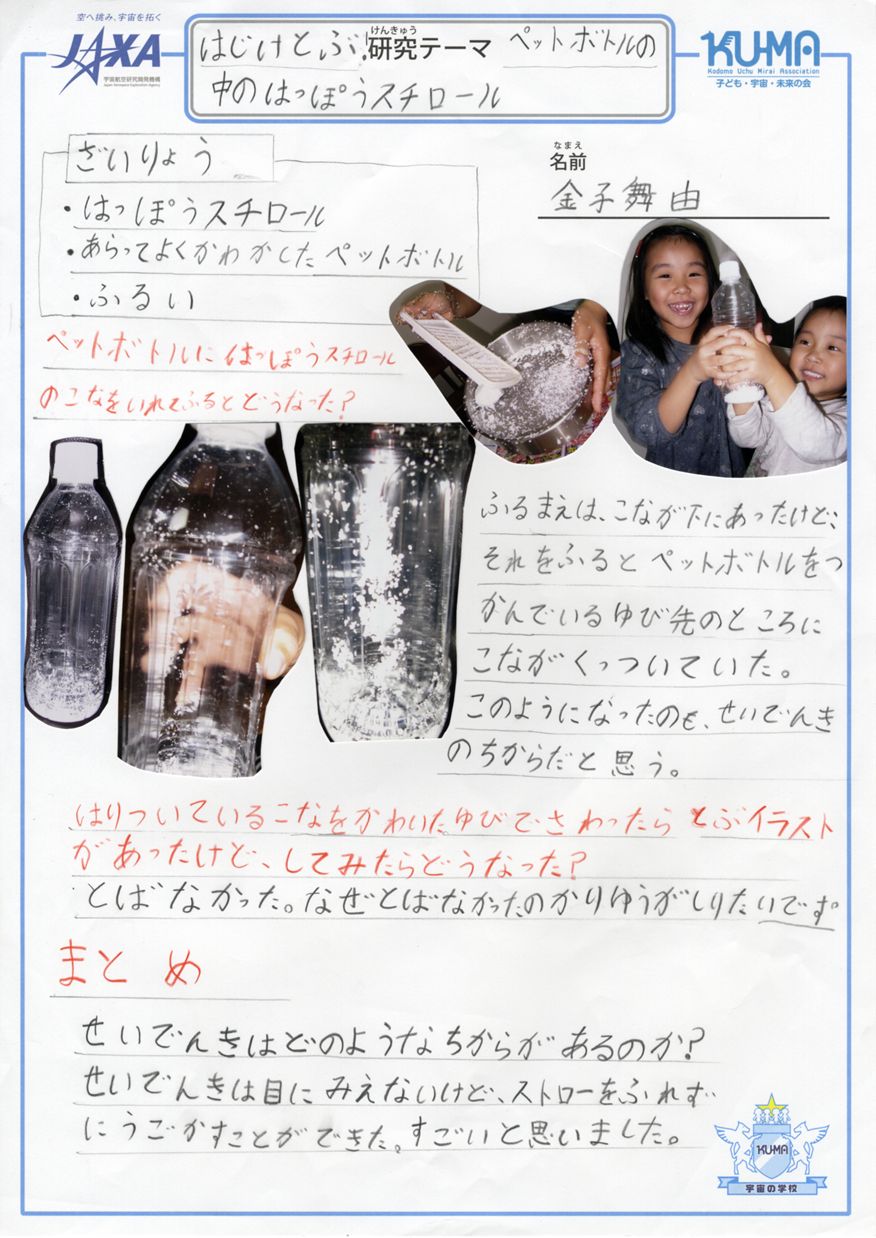 空へ挑み、宇宙を拓く
JAXA
宇宙航空研究開発機構
Japan Aerospace Exploration Agency
けんきゅう
はじけとぶ!研究テーマ ペットボトルの
中のはっぽうスチロール
KU-MA
Kodomo Uchu Mirai Association
子ども・宇宙・未来の会
ざいりょう
・はっぽうスチロール
・あらってよくかわかしたペットボトル
・ふるい
なまえ
名前
金子舞由
ペットボトルにはっぽうスチロール
のこなをいれてふるとどうなった?
ふるまえは、こなが下にあったけど、
それをふるとペットボトルをつ
かんでいるゆび先のところに
こながくっついていた。
このようになったのも、せいでんき
のちからだと思う。
はりついているこなをかわいたゆびでさわったらとぶイラスト
があったけど、してみたらどうなった?
とばなかった。なぜとばなかったのかりゆうがしりたいです
まとめ
せいでんきはどのようなちからがあるのか?
せいでんきは目にみえないけど、ストローをふれず
にうごかすことができた。すごいと思いました。
KU-MA
宇宙の学校